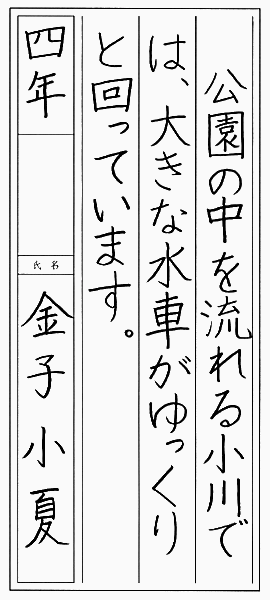 公園の中を流れる小川で
は、大きな水車がゆっくり
と回っています。
四年
氏名
金子小夏